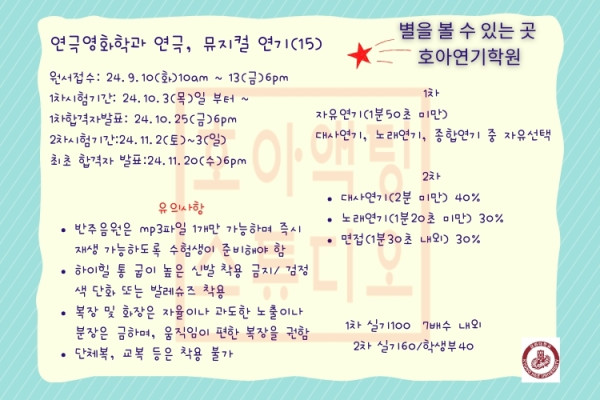 별을 볼 수 있는 곳
호아연기학원
연극영화학과 연극, 뮤지컬 연기(15)
원서접수: 24.9.10(화)10am ~ 13(금)6pm
1차시험기간: 24.10.3(목)일 부터 ~
1차합격자발표: 24.10.25(금)6pm
2차시험기간:24.11.2(토)~3(일)
최초 합격자 발표:24.11.20(수)6pm
유의사항
• 반주음원은 mp3파일 1개만 가능하며 즉시
재생 가능하도록 수험생이 준비해야 함
• 하이힐 통 굽이 높은 신발 착용 금지/ 검정
색 단화 또는 발레슈즈 착용
• 복장 및 화장은 자율이나 과도한 노출이나
분장은 금하며, 움직임이 편한 복장을 권함
• 단체복, 교복 등은 착용 불가
1차
자유연기(1분50초 미만)
대사연기, 노래연기, 종합연기 중 자유선택
2차
• 대사연기(2분 미만) 40%
• 노래연기(1분20초 미만) 30%
• 면접(1분30초 내외) 30%
1차 실기100 7배수 내외
2차 실기60/학생부40
호아액팅
스튜디오